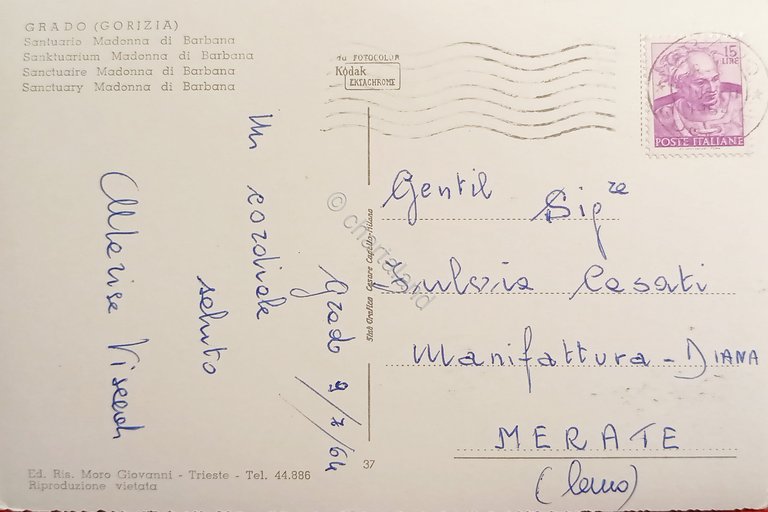 GRADO (GORIZIA)
Santuario Madonna di Barbana
Sanktuarium Madonna di Barbana
Sanctuaire Madonna di Barbana
Sanctuary Madonna di Barbana
da FOTOCOLOR
Kodak
EKTACHROME
15
LIRE
POSTE ITALIANE
Un cordiale
saluto
Grado 9/7/64
Gentil Sigre
Fulvia Casati
Manifattura - DIANA
MERATE
(Como)
© chartaland
Stab Grafico Cesare Capello-Milano
37
Ed. Ris. Moro Giovanni - Trieste - Tel. 44.886
Riproduzione vietata